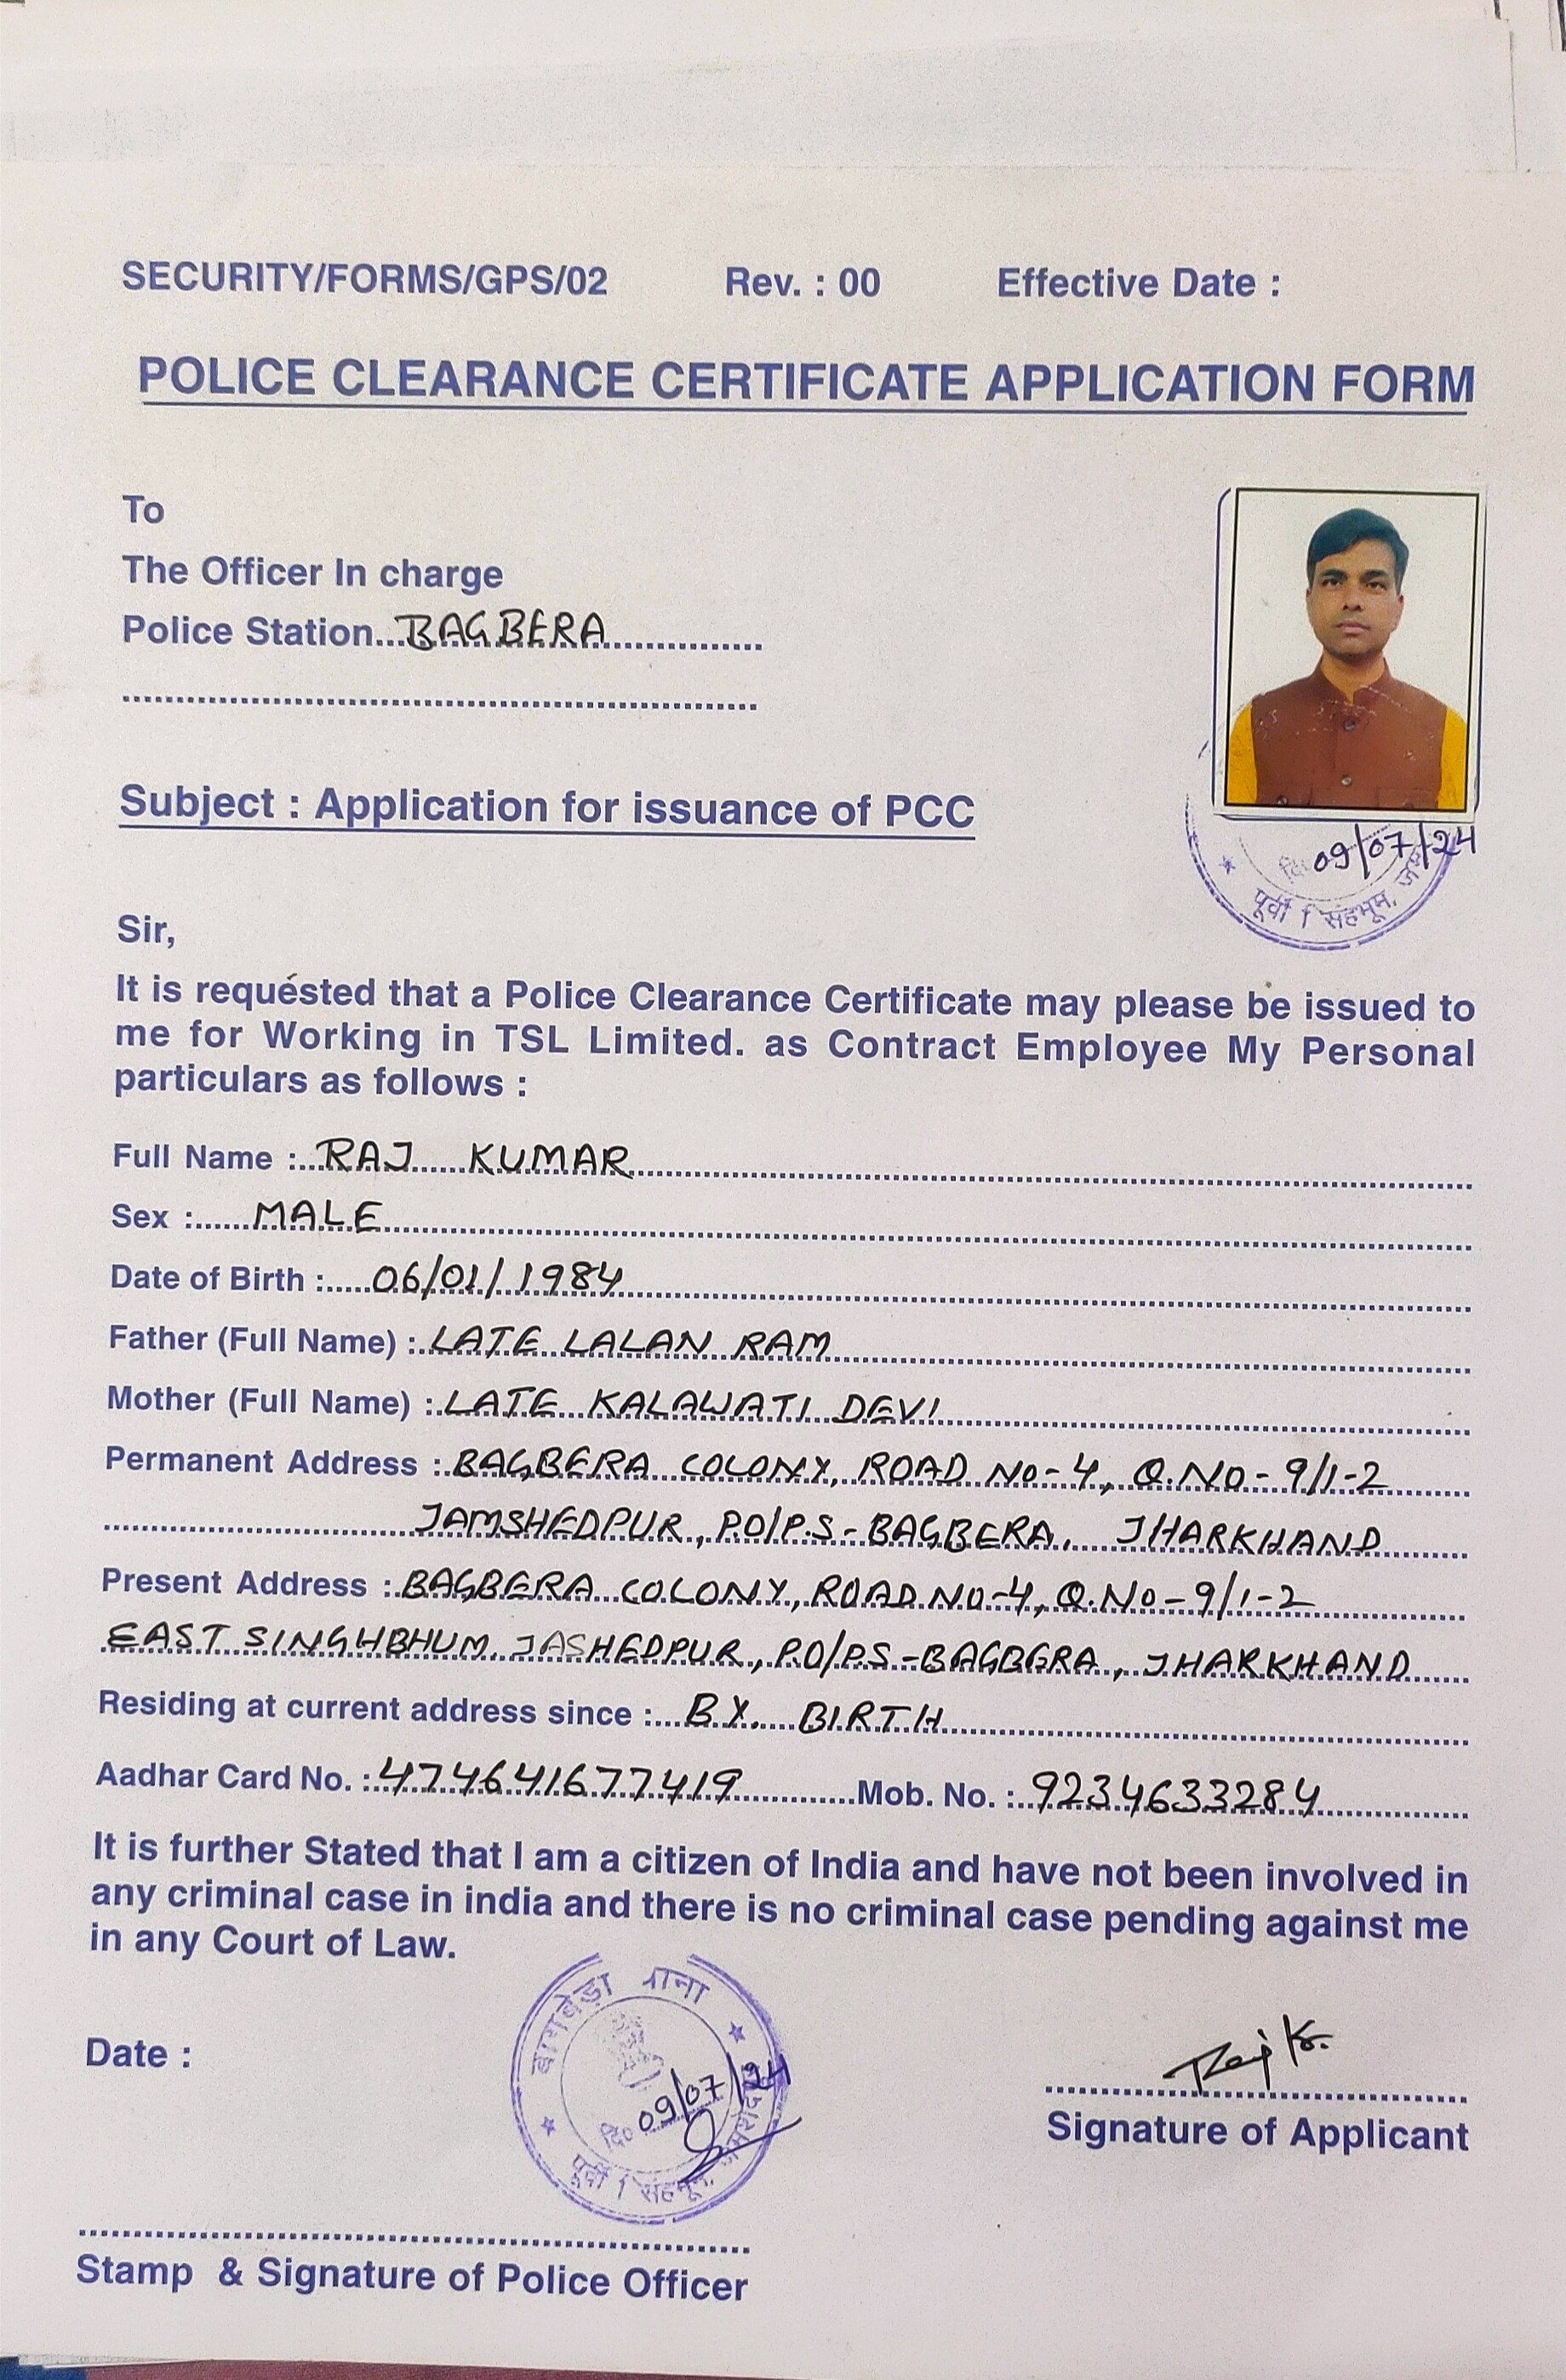 SECURITY/FORMS/GPS/02 Rev. : 00 Effective Date :
POLICE CLEARANCE CERTIFICATE APPLICATION FORM
To
The Officer In charge
Police Station...BAGBERA
Subject : Application for issuance of PCC
दि० 09/07/24
पूर्वी सिंहभूम,
Sir,
It is requested that a Police Clearance Certificate may please be issued to
me for Working in TSL Limited. as Contract Employee My Personal
particulars as follows :
Full Name : RAJ KUMAR
Sex : MALE
Date of Birth : 06/01/1984
Father (Full Name) : LATE LALAN RAM
Mother (Full Name) : LATE KALAWATI DEVI
Permanent Address : BAGBERA COLONY, ROAD NO-4, Q.NO-9/1-2
JAMSHEDPUR, P.O/P.S-BAGBERA, JHARKHAND
Present Address : BAGBERA COLONY, ROAD NO-4, Q.NO-9/1-2
EAST SINGHBHUM, JASHEDPUR, P.O/P.S-BAGBERA, JHARKHAND
Residing at current address since : BY BIRTH
Aadhar Card No. : 474641677419 Mob. No. : 9234633284
It is further Stated that I am a citizen of India and have not been involved in
any criminal case in india and there is no criminal case pending against me
in any Court of Law.
बागबेड़ा थाना
Date :
दि० 09/07/24
पूर्वी सिंहभूम, जमशेदपुर
Raj Kr.
Signature of Applicant
Stamp & Signature of Police Officer